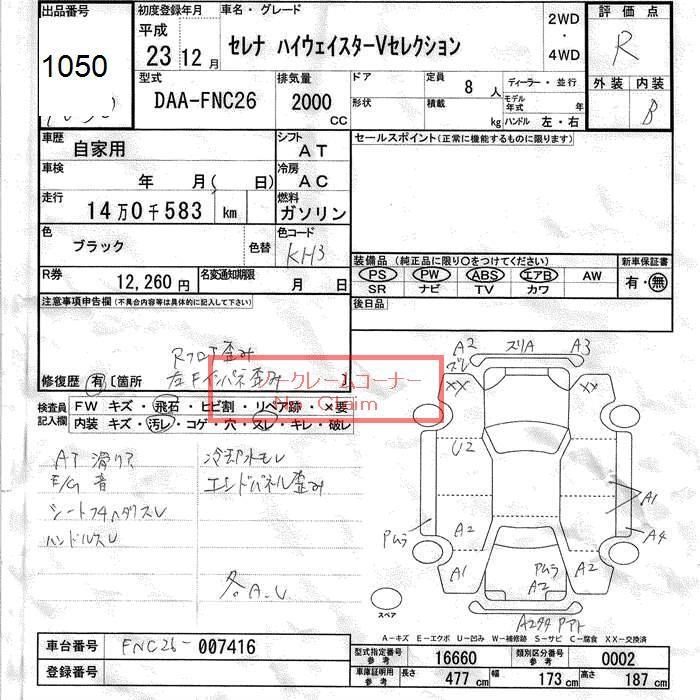 出品番号 初度登録年月 車名・グレード 評価点
1050 平成 23 12月 セレナ ハイウェイスターVセレクション 2WD・4WD R
型式 排気量 ドア 定員 8人 ディーラー・並行 外装 内装
DAA-FNC26 2000 CC 形状 積載 kg モデル年式 年 ハンドル 左・右 B
車歴 自家用 シフト AT セールスポイント(正常に機能するものに限ります)
車検 年 月( 日) 冷房 AC
走行 14万0千583 km 燃料 ガソリン
色 ブラック 色替 色コード KH3
装備品(純正品に限り〇をつけてください) 新車保証書
PS PW ABS エアB AW 有・無
SR ナビ TV カワ
R券 12,260円 名変通知期限 月 日
後日品
注意事項申告欄(不具合内容等は具体的に記入して下さい)
Rフロア歪み
修復歴 有 〔箇所 左Fインパネ歪み 〕
ノークレームコーナー
No Claim
検査員記入欄 FW キズ・飛石・ヒビ割・リペア跡・×要
内装 キズ・汚レ・コゲ・穴・スレ・キレ・破レ
AT 滑りア 冷却水モレ
E/G 音 エンドパネル歪み
ハンドルスレ
各A.U
A2 ズリA A3
ズレ
XX XX
U2
A1
Pムラ A2 A4
A1 Pムラ A2 A2
スペア
A2
A-キズ E-エクボ U-凹み W-補修跡 S-サビ C-腐食 XX-交換済
車台番号 FNC26-007416
登録番号
型式指定番号 参考 16660 類別区分番号 参考 0002
車庫証明用 参考 長さ 477 cm 幅 173 cm 高さ 187 cm